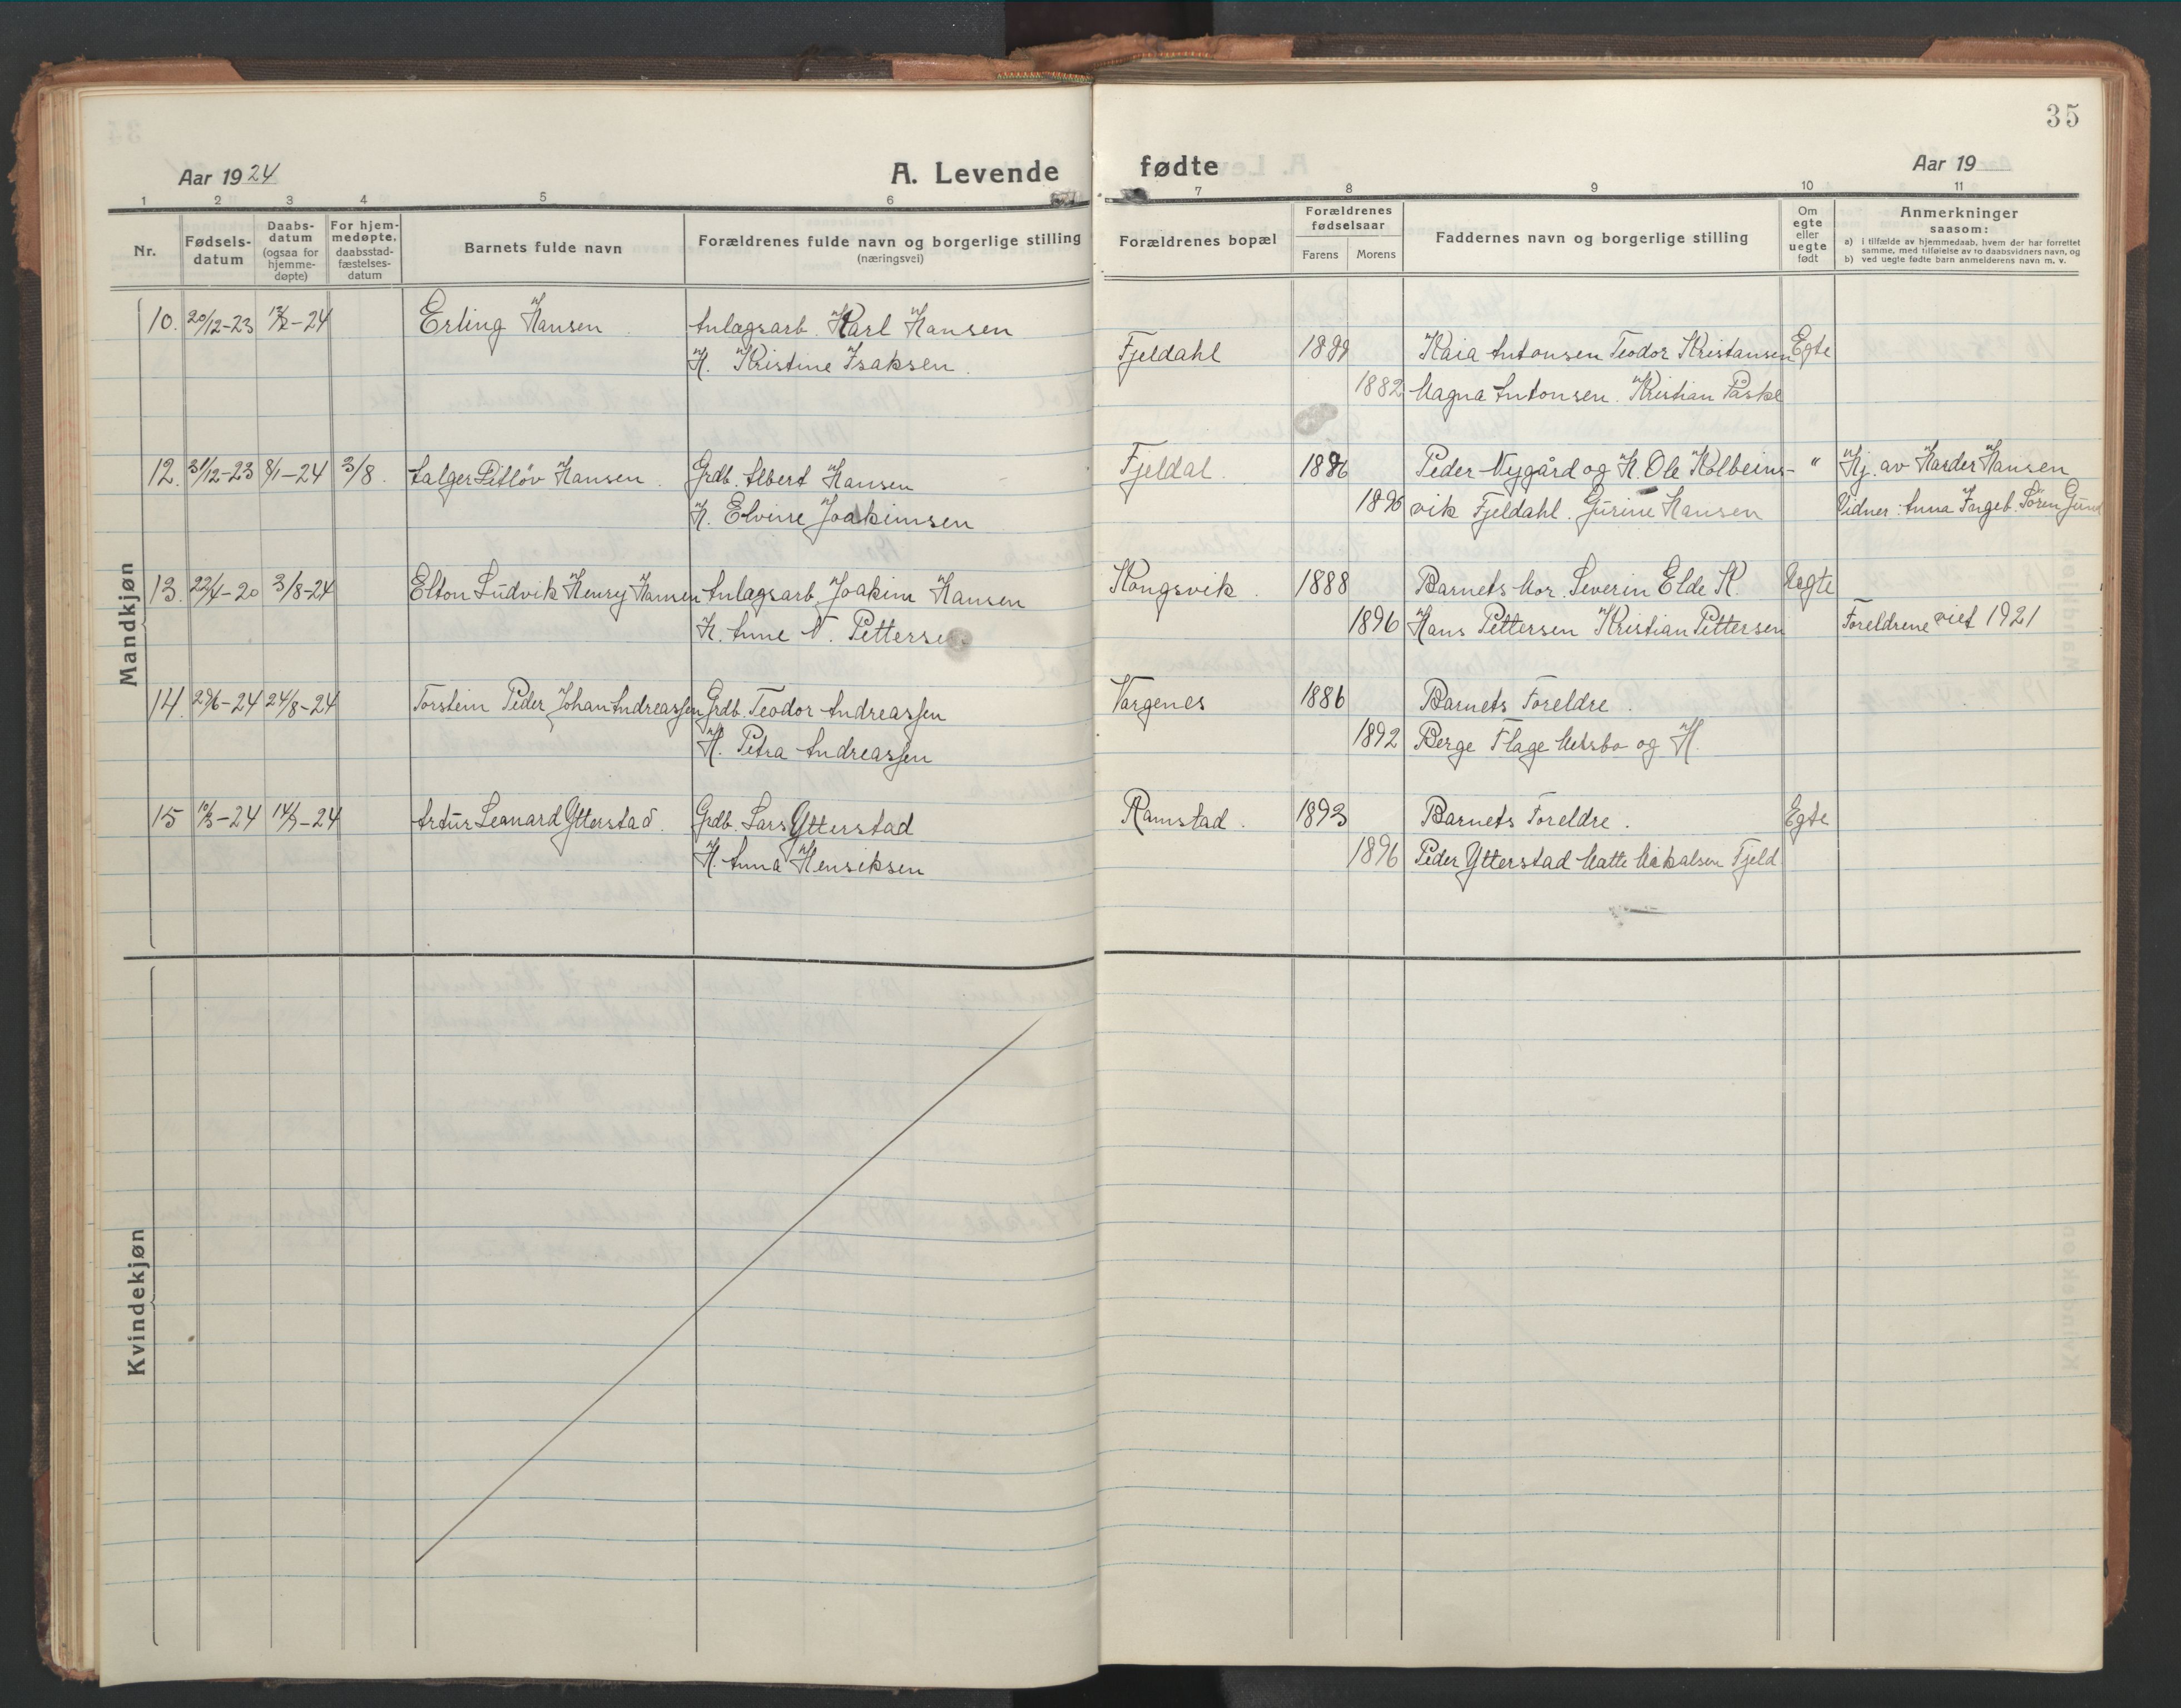 35
Aar 1924
A. Levende fødte
Aar 19
1 2 3 4 5 6 7 8 9 10 11
Nr.
Fødsels-
datum
Daabs-
datum
(ogsaa for
hjemme-
døpte)
For hjem-
medøpte,
daabsstad-
fæstelses-
datum
Barnets fulde navn
Forældrenes fulde navn og borgerlige stilling
(næringsvei)
Forældrenes bopæl
Forældrenes
fødselsaar
Farens Morens
Faddernes navn og borgerlige stilling
Om
egte
eller
uegte
født
Anmerkninger
saasom:
a) i tilfælde av hjemmedaab, hvem der har forrettet
samme, med tilføielse av to daabsvidners navn, og
b) ved uegte fødte barn anmelderens navn m. v.
Mandkjøn
10. 20/12-23 -24 Erling Hansen Anlægsarb. Karl Hansen
H. Kristine Isaksen.
Fjeldahl Kaia Antonsen Teodor Kristansen Egte
1882 Magna Antonsen. Kristian Paske
12. 31/12-23 8/1-24 3/8. Hansen. Grdb. Albert Hansen
H. Elvine Joakimsen
Fjeldal. 1886 Peder Nygård og H. Ole Kolbeins- "
vik Fjeldahl. Gurine Hansen
Hj. av Harder Hansen
Vidner: Anna Ingeb. Sören
13. 22/4-20 3/8-24 Elton Ludvik Henry Hansen Anlægsarb. Joakim Hansen
H. Anne N. Pettersen
Kongsvik. 1888 Barnets Mor. Severin Elde K. Uegte
1896 Hans Pettersen Kristian Pettersen Foreldrene viet 1921
14. 29/6-24 24/8-24 Torstein Peder Johan Andreassen Grdb. Teodor Andreassen
H. Petra Andreassen
Vargenes 1886 Barnets Foreldre.
1892 Berge Flage og H.
15 -24 -24 Artur Leonard Ytterstad. Grdb. Lars Ytterstad
H. Anna Henriksen
Ramstad. 1893 Barnets Foreldre. Egte
1896 Peder Ytterstad Matte Mikalsen Fjeld.
Kvindekjøn